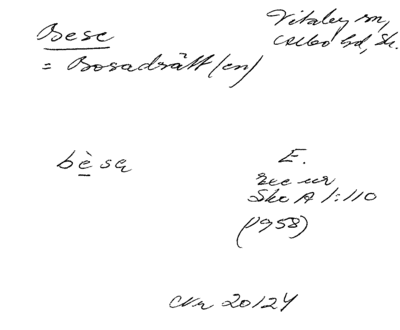 Bese
= Bosadrätt(en)
Vitaby sn,
Albo hd, Sk.
bèsa
E.
rec ur
Sko A 1:110
(1958)
Nr 20124